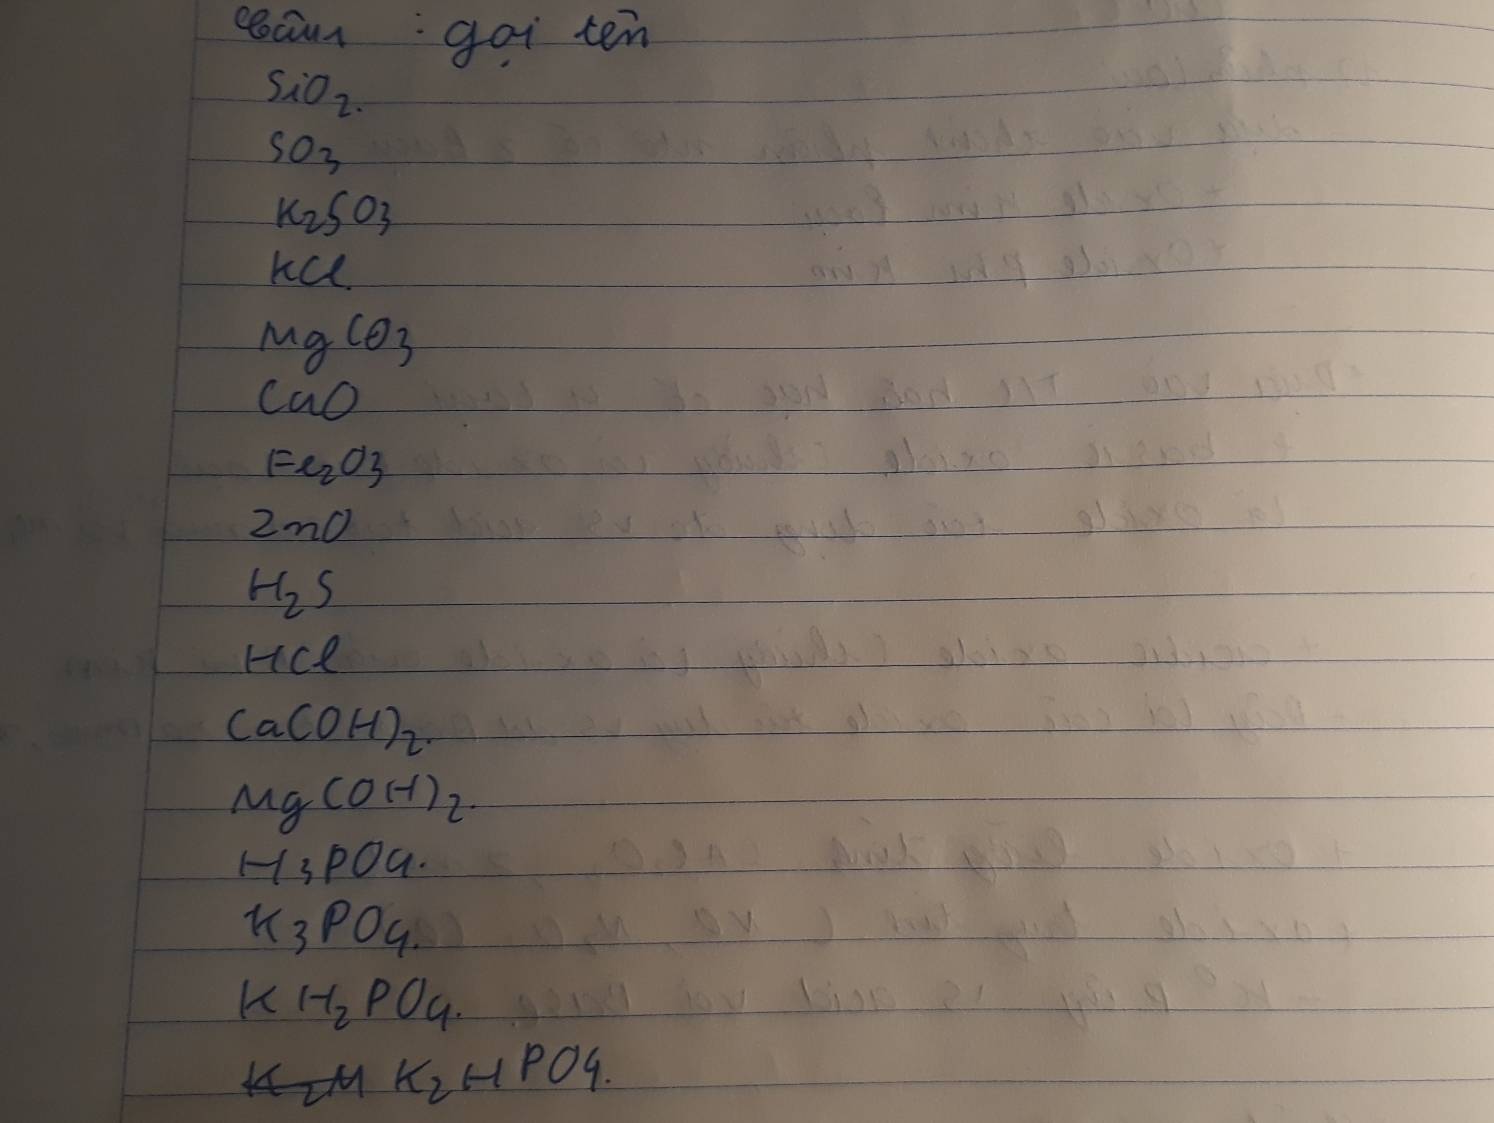 : gọi tên
SiO2.
SO3
K2SO3
KCl.
MgCO3
CaO
Fe2O3
ZnO
H2S
HCl
Ca(OH)2.
Mg(OH)2.
H3PO4.
K3PO4.
KH2PO4.
K2HPO4.